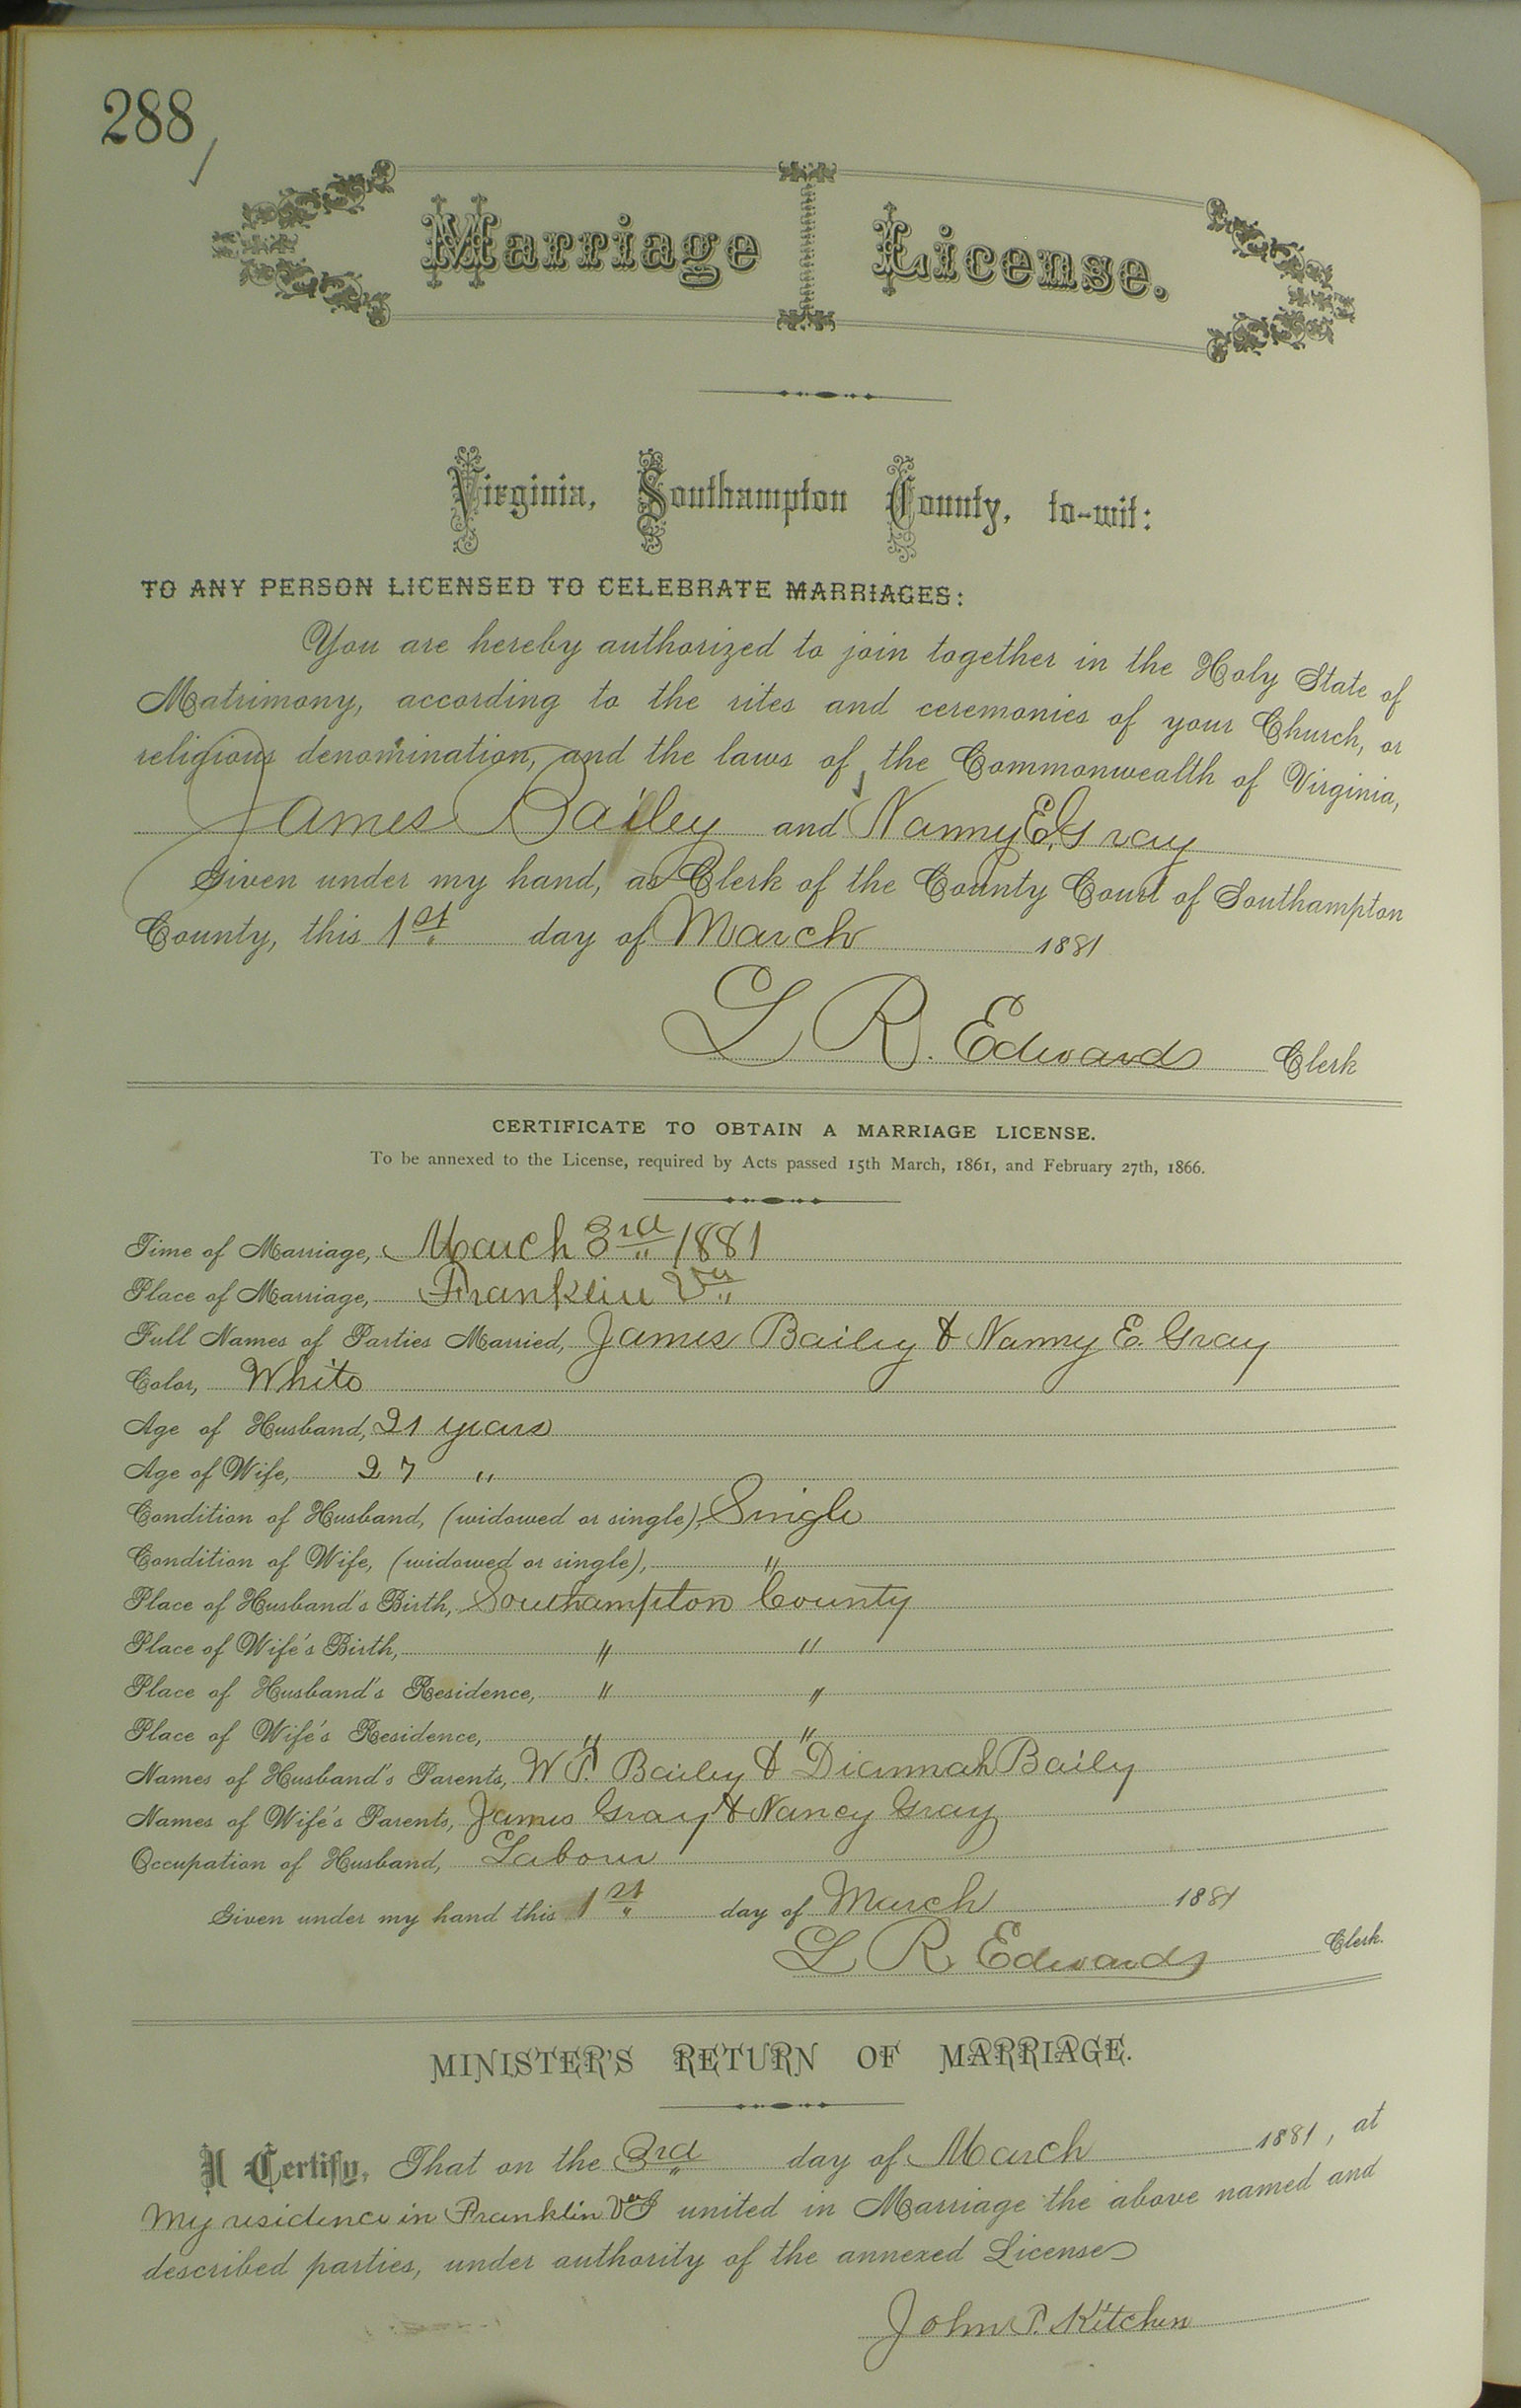 288
Marriage License.
Virginia, Southampton County, to-wit:
TO ANY PERSON LICENSED TO CELEBRATE MARRIAGES:
You are hereby authorized to join together in the Holy State of
Matrimony, according to the rites and ceremonies of your Church, or
religious denomination, and the laws of the Commonwealth of Virginia,
James Bailey and Nanny E. Gray
Given under my hand, as Clerk of the County Court of Southampton
County, this 1st day of March 1881
L R. Edwards Clerk
CERTIFICATE TO OBTAIN A MARRIAGE LICENSE.
To be annexed to the License, required by Acts passed 15th March, 1861, and February 27th, 1866.
Time of Marriage, March 3rd 1881
Place of Marriage, Franklin Va
Full Names of Parties Married, James Bailey & Nanny E. Gray
Color, White
Age of Husband, 21 years
Age of Wife, 27 "
Condition of Husband, (widowed or single), Single
Condition of Wife, (widowed or single), "
Place of Husband's Birth, Southampton County
Place of Wife's Birth, " "
Place of Husband's Residence, " "
Place of Wife's Residence, " "
Names of Husband's Parents, W P. Bailey & Diannah Baily
Names of Wife's Parents, James Gray & Nancy Gray
Occupation of Husband, Labour
Given under my hand this 1st day of March 1881
L R Edwards Clerk.
MINISTER'S RETURN OF MARRIAGE.
I Certify, That on the 3rd day of March 1881, at
My residence in Franklin Va I united in Marriage the above named and
described parties, under authority of the annexed License
John P. Kitchen